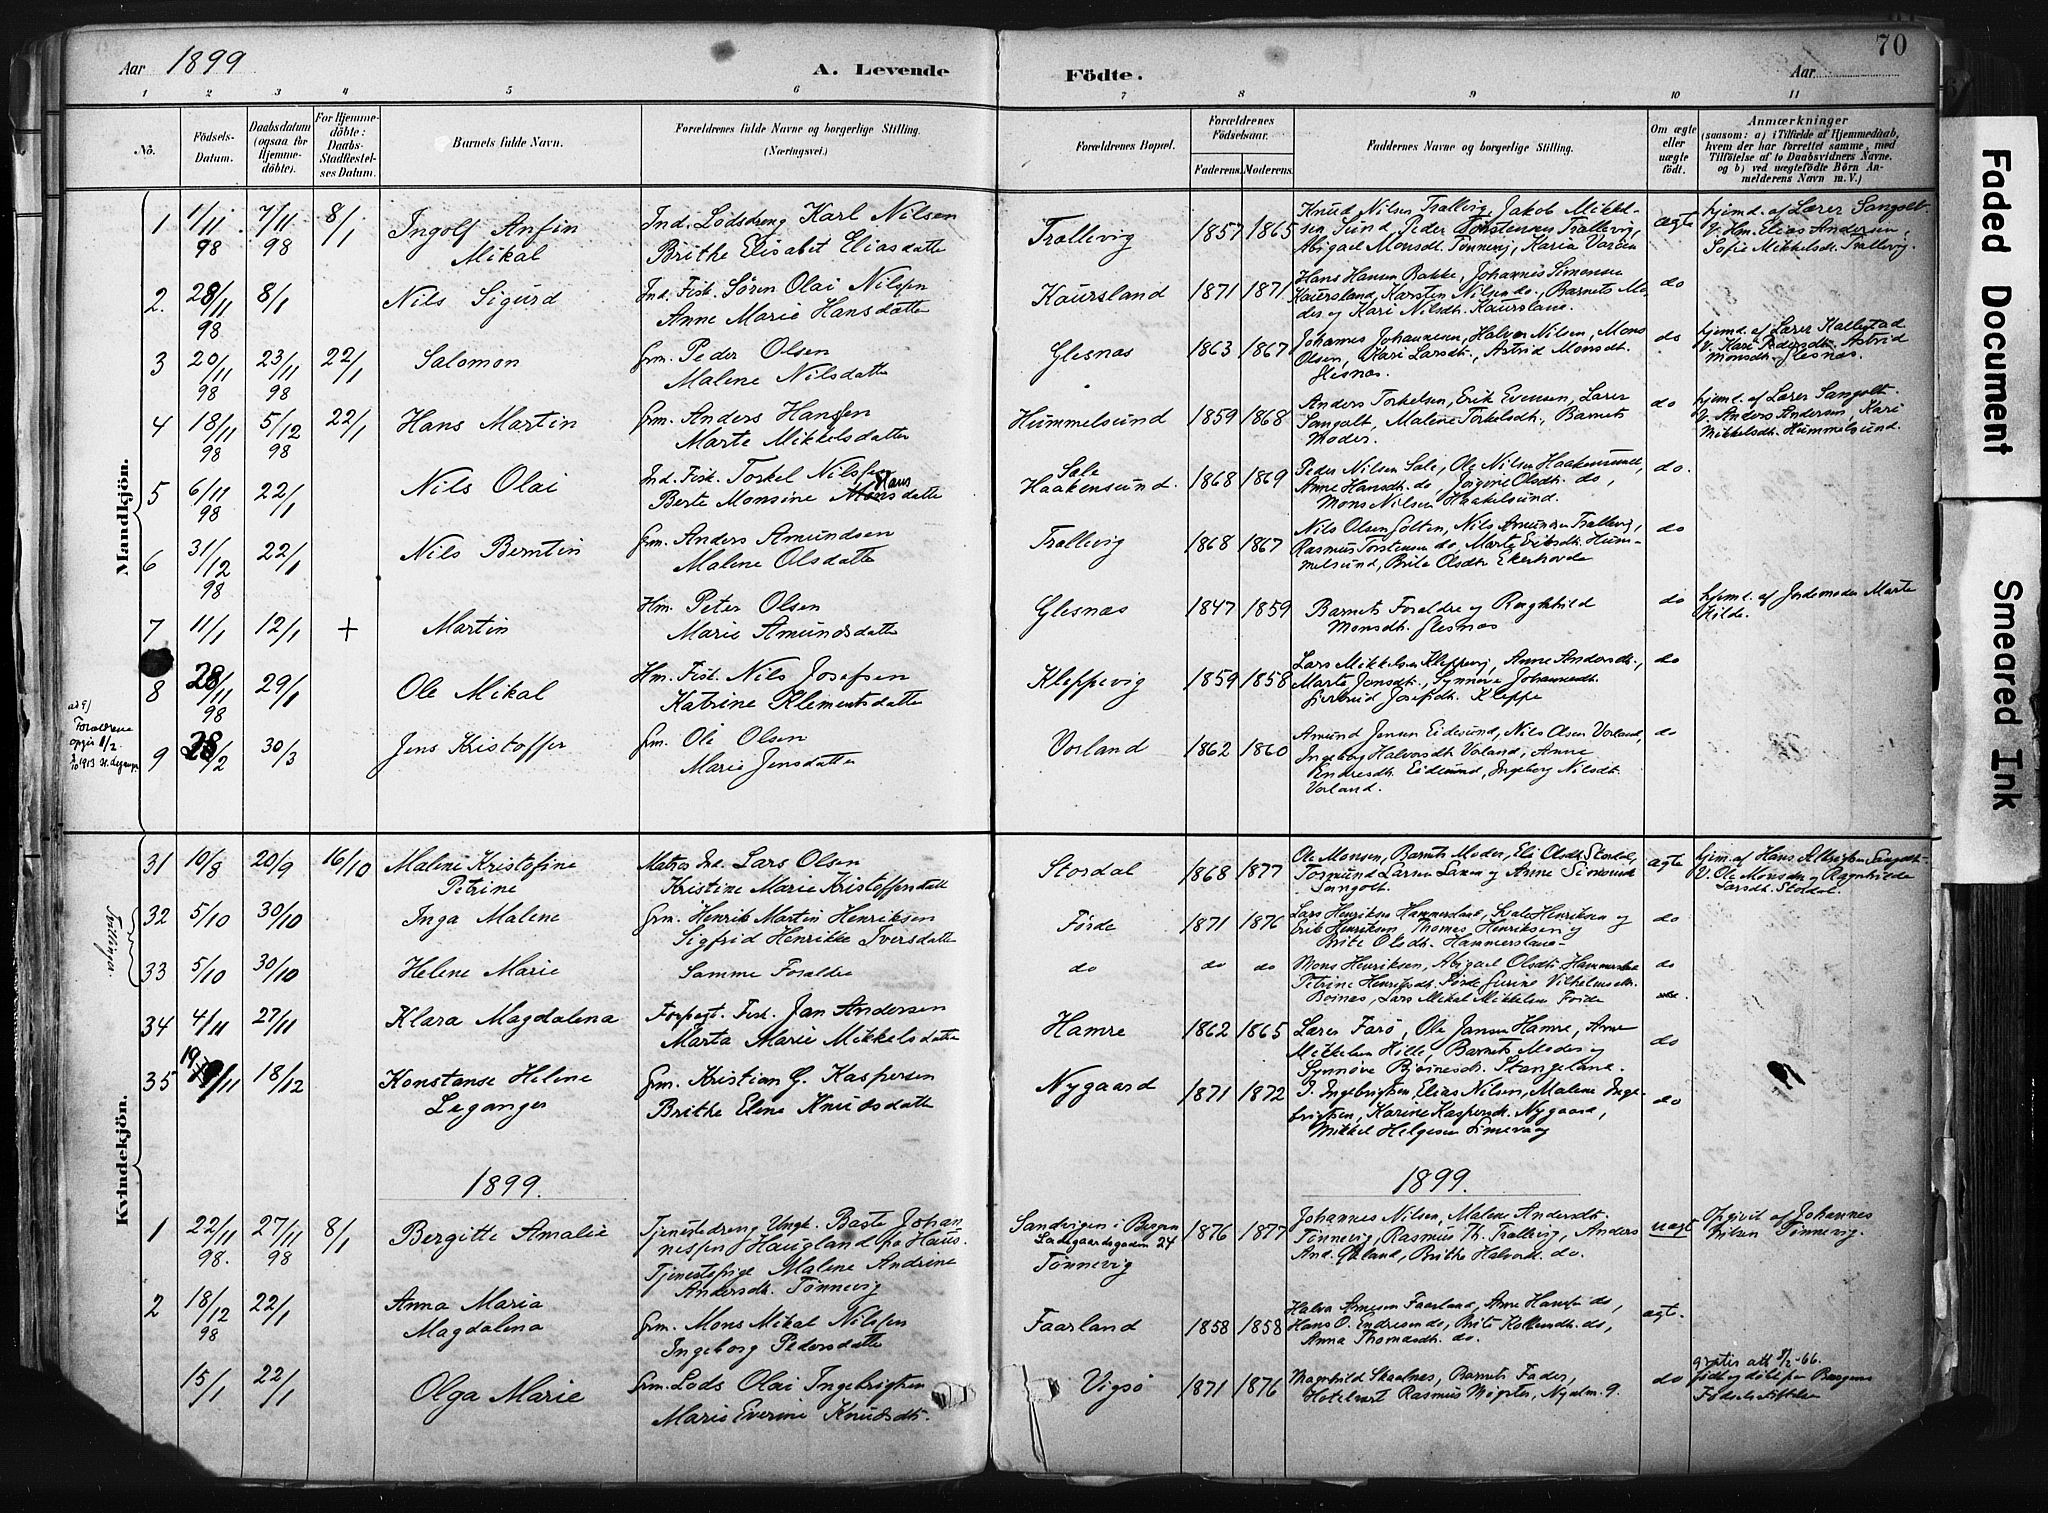 Aar 1899
A. Levende
Födte.
Aar
70
1 2 3 4 5 6 7 8 9 10 11
No.
Födsels-
Datum.
Daabsdatum
(ogsaa for
Hjemme-
döbte).
For Hjemme-
döbte:
Daabs-
Stadfæstel-
ses Datum.
Barnets fulde Navn.
Forældrenes fulde Navne og borgerlige Stilling.
(Næringsvei.)
Forældrenes Bopæl.
Forældrenes
Födselsaar.
Faderens. Moderens.
Faddernes Navne og borgerlige Stilling.
Om ægte
eller
uægte
födt.
Anmærkninger
(saasom: a) i Tilfælde af Hjemmedaab,
hvem der har forrettet samme, med
Tilföielse af to Daabsvidners Navne,
og b) ved uægtefödte Börn An-
melderens Navn m. V.)
Mandkjön.
1 1/11 98 7/11 98 8/1 Ingolf Anfin Mikal
Ind. Lodsdreng Karl Nilsen
Brithe Elisabet Eliasdatte
Trællevig 1857 1865
Knud Nilsen Trællevig, Jakob Mikkel-
sen Sund, Peder Torstensen Trællevig,
Abigael Monsdt. Tönnevig, Maria
ægte
hjemd. af Lærer Sangolt.
V. Hm. Elias Andersen,
Sofie Mikkelsdt. Trællevig.
2. 28/11 98 8/1 Nils Sigurd
Ind. Fisk. Sören Olai Nilssen
Anne Marie Hansdatte
Kaursland 1871 1871
Hans Hansen Bakke, Johannes Simonsen
Kaursland, Karsten Nilsen do., Barnets Mo-
der og Kari Nilsdt. Kaursland.
do
3 20/11 98 23/11 98 22/1 Salomon
Grm. Peder Olsen
Malene Nilsdatte
Glesnæs 1863 1867
Johannes Johannesen, Halvor Nilsen, Mons
Olsen, Kari Larsdt., Astrid Monsdt.
Glesnæs.
do
hjemd. af Lærer Kallestad
V. Kari Pedersdt. Astrid
Monsdt. Glesnæs.
4 18/11 98 5/12 98 22/1 Hans Martin
Grm. Anders Hansen
Marte Mikkelsdatter
Hummelsund 1859 1868
Anders Torkelsen, Erik Evensen, Lærer
Sangolt, Malene Torkelsdt., Barnets
Moder.
do
hjemd. af Lærer Sangolt.
V. Anders Andersen, Kari
Mikkelsdt. Hummelsund.
5 6/11 98 22/1 Nils Olai
Ind. Fisk. Torkel Nilssen
Berte Monsine Hansdatte
Sæle
Haakensund. 1868 1869
Peder Nilsen Sæle, Ole Nilsen Haakensund,
Anne Hansdt. do, Jörgine Olsdt. do,
Mons Nilsen Haakelsund.
do.
6 31/12 98 22/1 Nils Berntin
Grm. Anders Amundsen
Malene Olsdatte
Trællevig 1868 1867
Nils Olsen Golten, Nils Amundsen Trællevig,
Rasmus Torstensen do, Marte Eriksdt. Hum-
melsund, Brite Olsdt. Ekerhovde
do
7 11/1 12/1 + Martin
Hm. Peter Olsen
Marie Amundsdatte
Glesnæs 1847 1859
Barnets Forældre og Ragnhild
Monsdt. Glesnæs
do
hjemd. af Jordemoder Marte
Hilde.
8 28/11 98 29/1 Ole Mikal
Hm. Fisk. Nils Josefsen
Katrine Klementsdatte
Kleppevig 1859 1858
Lars Mikkelsen Kleppevig, Anne Andersdt.,
Marte Jonsdt., Synneve Johannesdt.
Gjertrud Josefsdt. Kleppe
do
ad 9)
Forældrene
opgir 8/2.
9 28/2 30/3 Jens Kristoffer
Grm. Ole Olsen
Marie Jensdatte
Vorland 1862 1860
Amund Jensen Eidesund, Nils Olsen Vorland,
Ingeborg Halvorsdt. Vorland, Anne
Endresdt. Eidesund, Ingeborg Nilsdt.
Vorland.
do
Kvindekjön.
31 10/8 20/9 16/10 Malene Kristofine Petrine
Matros Ind. Lars Olsen
Kristine Marie Kristoffersdatt
Stordal 1868 1877
Ole Monsen, Barnets Moder, Eli Olsdt. Stordal,
Tormund Larsen og Anne
Sangolt.
ægte
hjem. af Hans Sangolt.
V. Ole Monsen og Ragnhilde
Larsdt. Stordal.
Tvillinger
32 5/10 30/10 Inga Malene
Grm. Henrik Martin Henriksen
Sigfrid Henrikke Iversdatte
Förde 1871 1876
Lars Henriksen Hammersland, Henriksen og
Erik Henriksen, Thomas Henriksen og
Brite Olsdt. Hammersland
do
33 5/10 30/10 Helene Marie
Samme Forældre
do do do
Mons Henriksen, Abigael Olsdt. Hammersland
Petrine Henriksdt. Förde Gurine Vilhelmsdt.
Lars Mikal Mikkelsen Förde
do
34 4/11 27/11 Klara Magdalena
Forpagt. Fisk. Jan Andersen
Marta Marie Mikkelsdatte
Hamre 1862 1865
Lærer Farö, Ole Jansen Hamre, Arne
Mikkelsen Hille, Barnets Moder og
Synnöve Stangeland.
do
35 19/11 18/12 Konstanse Helene Leganger
Grm. Kristian G. Kaspersen
Brithe Elene Knudsdatte
Nygaard 1871 1872
I. Ingebrigtsen, Elias Nilsen, Malene Inge-
brigtsen, Karine Kaspersdt. Nygaard,
Mikkel Helgesen Limevaag
do
1899.
1899.
1 22/11 98. 27/11 98 8/1 Bergitte Amalie
Tjenestedreng Ungk. Baste Johan
nessen Haugland
Tjenestepige Malene Andrine
Andersdt. Tönnevig
Sandvigen i Bergen
Ladegaardsgaden 24
Tönnevig
1876 1877
Johannes Nilsen, Malene Andersdt.
Tönnevig, Rasmus Th. Trællevig, Anders
And. Brithe Halvors. do.
uægt
Opgivet af Johannes
Nilsen Tönnevig.
2 18/12 98 22/1 Anna Maria Magdalena
Grm. Mons Mikal Nilssen
Ingeborg Pedersdatte
Faarland 1858 1858
Halvor Arnesen Faarland, Anne Hansdt do,
Hans O. Endresen do, Brite do,
Anna Thomasdt. do.
ægt.
15/1 22/1 Olga Marie
Grm. Lods Olai Ingebrigtsen
Marie Everine Knudsdt.
Vigsö 1871 1876
Magnhild Skaalnes, Barnets Fader,
Hotelvært Rasmus Mögster, Nyalm. 9.
do
gratis att 8/2-66.
födt og döbt paa Bergens
Födselsstiftelse
Faded Document
Smeared Ink